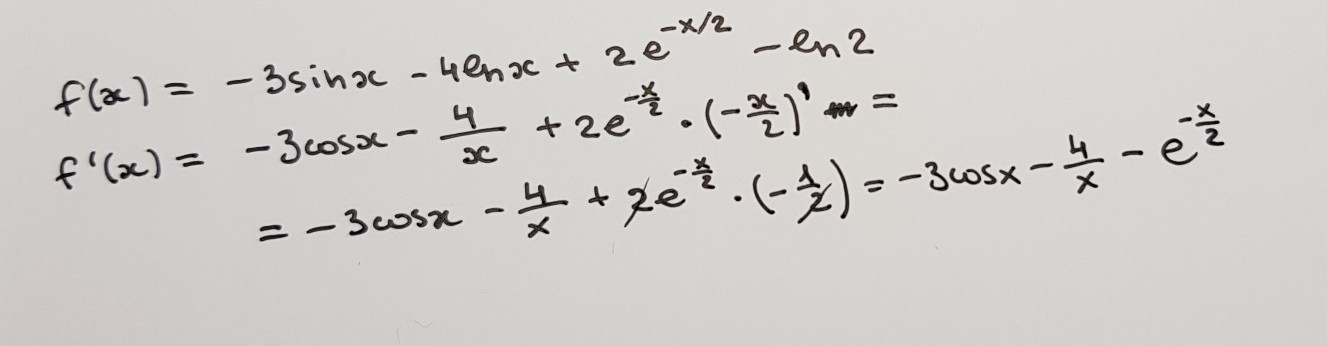 f(x) = -3sinx - 4lnx + 2e^{-x/2} - ln2
f'(x) = -3cosx - \frac{4}{x} + 2e^{-\frac{x}{2}} · (-\frac{x}{2})' =
= -3cosx - \frac{4}{x} + 2e^{-\frac{x}{2}} · (-\frac{1}{2}) = -3cosx - \frac{4}{x} - e^{-\frac{x}{2}}